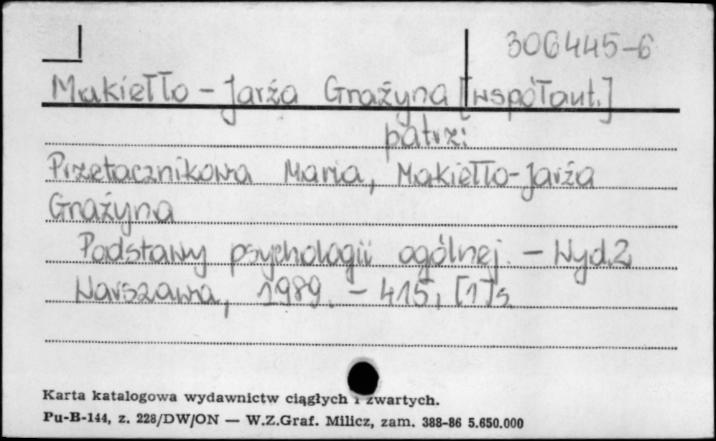 306445-6
Makiełło-Jarża Grażyna [współaut.]
patrz:
Przetacznikowa Maria, Makiełło-Jarża
Grażyna
Podstawy psychologii ogólnej. - Wyd.2
Warszawa, 1989. - 415, [1] s
Karta katalogowa wydawnictw ciągłych i zwartych.
Pu-B-144, z. 228/DW/ON — W.Z.Graf. Milicz, zam. 388-86 5.650.000